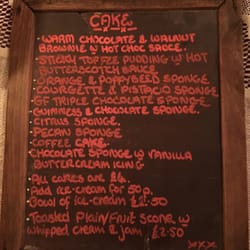 CAKE
· WARM CHOCOLATE & WALNUT
BROWNIE W HOT CHOC SAUCE.
· STICKY TOFFEE PUDDING W HOT
BUTTERSCOTCH SAUCE
· ORANGE & POPPYSEED SPONGE
· COURGETTE & PISTACIO SPONGE
· GF TRIPLE CHOCOLATE SPONGE
· GUINNESS & CHOCOLATE SPONGE.
· CITRUS SPONGE
· PECAN SPONGE
· COFFEE CAKE.
· CHOCOLATE SPONGE W VANILLA
BUTTERCREAM ICING
· ALL CAKES ARE £4.
· Add ice-cream for 50p.
· Bowl of ice-cream £2.50
· Toasted Plain/Fruit Scone W
whipped cream & jam £2.50
xxx